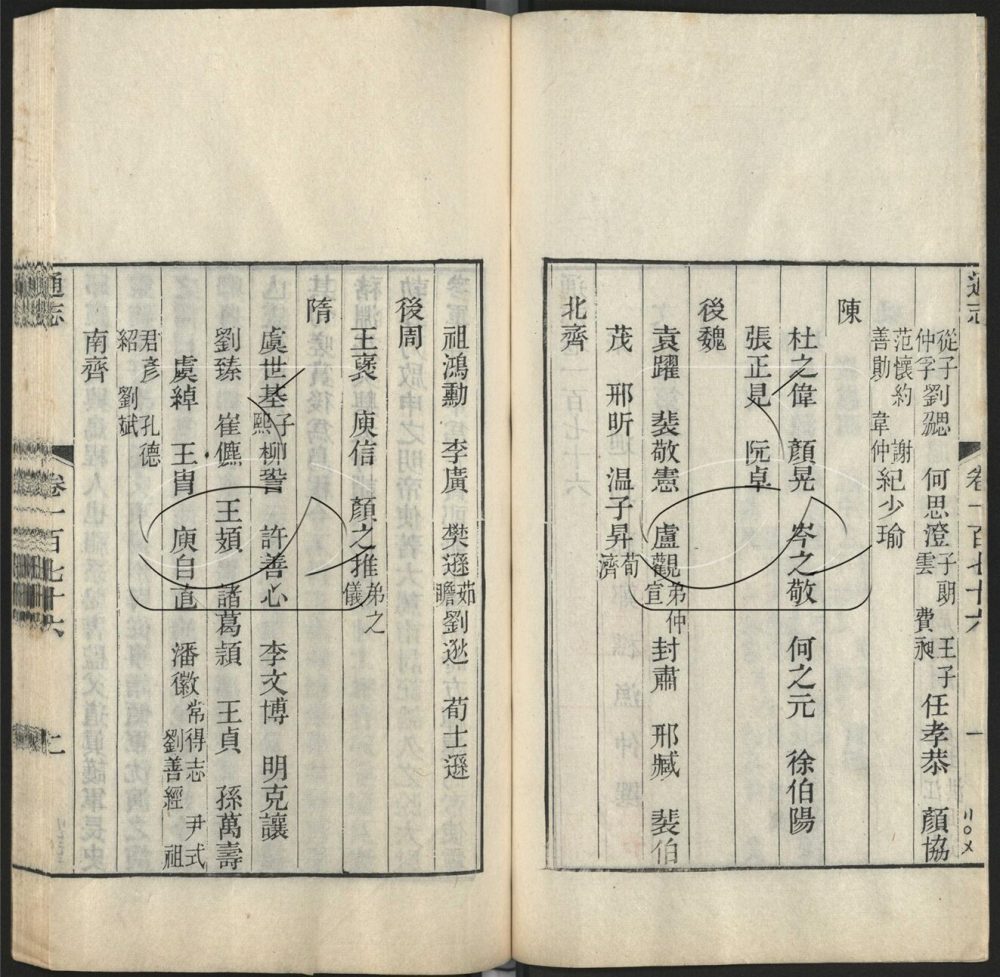 通志 卷一百七十六 一 〢〇〤
從子仲孚 劉勰 何思澄 子朗 王子雲 費昶 任孝恭 顏協
范懷約 謝善勛 韋仲 紀少瑜
陳
杜之偉 顏晃 岑之敬 何之元 徐伯陽
張正見 阮卓
後魏
袁躍 裴敬憲 盧觀 弟仲宣 封肅 邢臧 裴伯
茂 邢昕 温子昇 荀濟
北齊
祖鴻勳 李廣 樊遜 茹瞻 劉逖 荀士遜
後周
王褒 庾信 顏之推 弟之儀
隋
虞世基 子熙 柳䛒 許善心 李文博 明克讓
劉臻 崔儦 王頍 諸葛頴 王貞 孫萬壽
虞綽 王胄 庾自直 潘徽 常得志 尹式 劉善經 祖
君彥 孔德紹 劉斌
南齊
通志 卷一百七十六 二